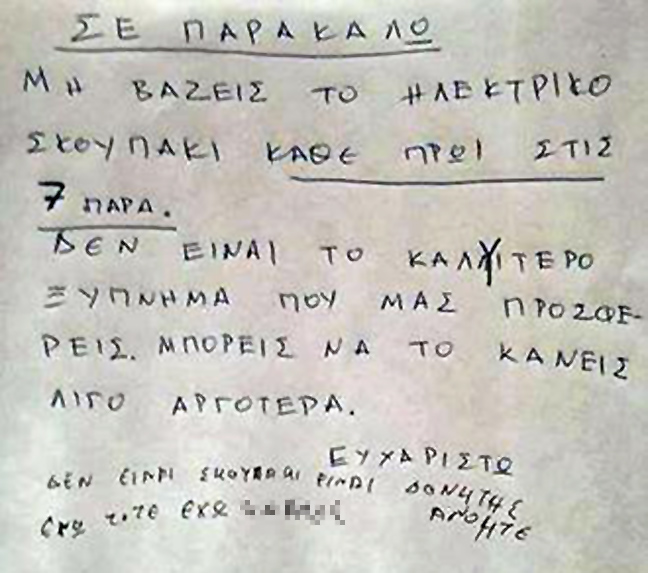 ΣΕ ΠΑΡΑΚΑΛΩ
ΜΗ ΒΑΖΕΙΣ ΤΟ ΗΛΕΚΤΡΙΚΟ
ΣΚΟΥΠΑΚΙ ΚΑΘΕ ΠΡΩΙ ΣΤΙΣ
7 ΠΑΡΑ.
ΔΕΝ ΕΙΝΑΙ ΤΟ ΚΑΛΥΤΕΡΟ
ΞΥΠΝΗΜΑ ΠΟΥ ΜΑΣ ΠΡΟΣΦΕ-
ΡΕΙΣ. ΜΠΟΡΕΙΣ ΝΑ ΤΟ ΚΑΝΕΙΣ
ΛΙΓΟ ΑΡΓΟΤΕΡΑ.
ΕΥΧΑΡΙΣΤΩ
ΔΕΝ ΕΙΝΑΙ ΣΚΟΥΠΑΚΙ ΕΙΝΑΙ ΔΟΝΗΤΗΣ
ΕΧΩ